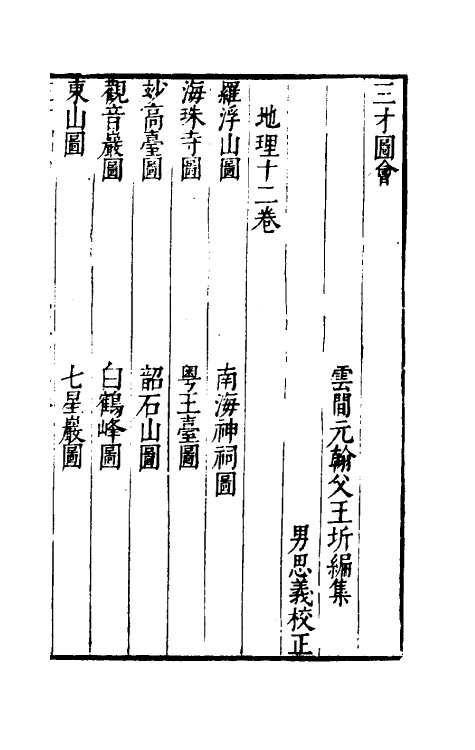 三才圖會
雲間元翰父王圻編集
男思義校正
地理十二卷
羅浮山圖　南海神祠圖
海珠寺圖　粵王臺圖
妙高臺圖　韶石山圖
觀音巖圖　白鶴峰圖
東山圖　七星巖圖